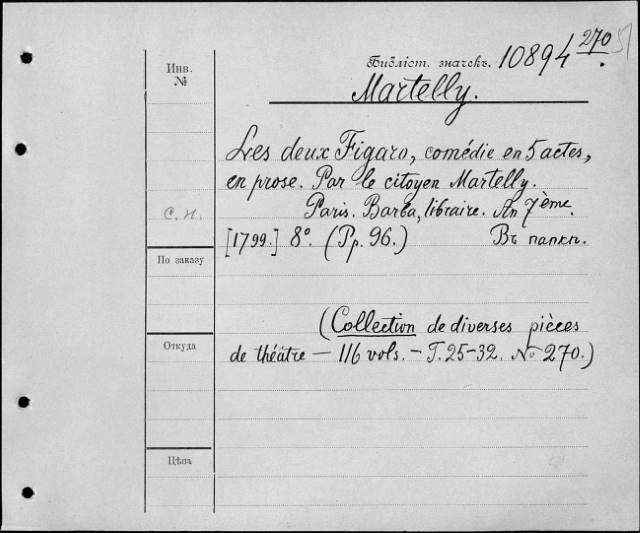 Инв.
№
Библіот. значекъ. 10894 270.
Martelly.
Les deux Figaro, comédie en 5 actes,
en prose. Par le citoyen Martelly.
Paris. Barba, libraire. An 7ème.
С. Н.
[1799.] 8°. (Pp. 96.) Въ папкѣ.
По заказу
(Collection de diverses pièces
Откуда
de théâtre — 116 vols. — T. 25-32. № 270.)
Цѣна